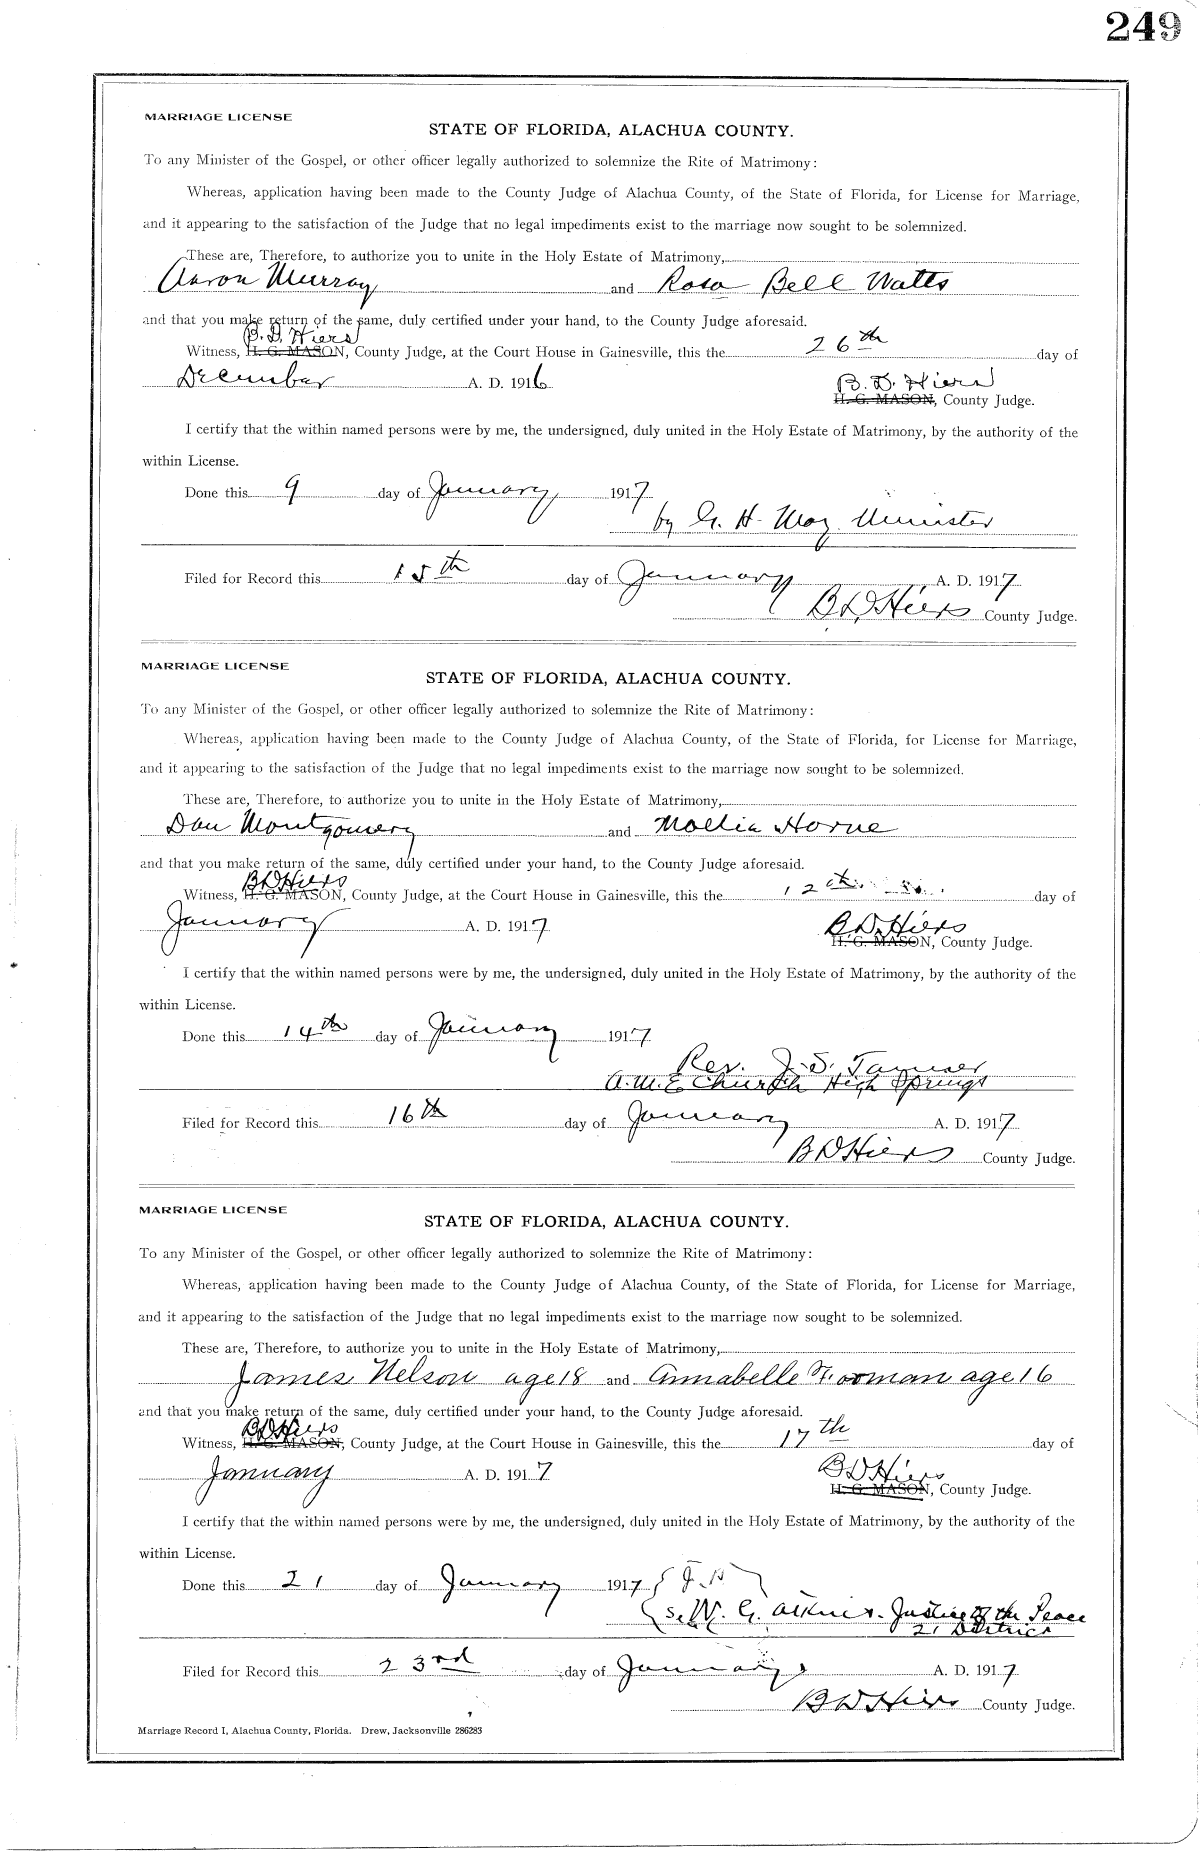 249
MARRIAGE LICENSE
STATE OF FLORIDA, ALACHUA COUNTY.
To any Minister of the Gospel, or other officer legally authorized to solemnize the Rite of Matrimony:
Whereas, application having been made to the County Judge of Alachua County, of the State of Florida, for License for Marriage,
and it appearing to the satisfaction of the Judge that no legal impediments exist to the marriage now sought to be solemnized.
These are, Therefore, to authorize you to unite in the Holy Estate of Matrimony,
Aaron Murray and Rosa Bell Watts
and that you make return of the same, duly certified under your hand, to the County Judge aforesaid.
B. D. Hiers
Witness, H. G. MASON, County Judge, at the Court House in Gainesville, this the 26th day of
December A. D. 1916 B. D. Hiers
H. G. MASON, County Judge.
I certify that the within named persons were by me, the undersigned, duly united in the Holy Estate of Matrimony, by the authority of the
within License.
Done this 9 day of January 1917
by G. H. May Minister
Filed for Record this 15th day of January A. D. 1917
B D Hiers County Judge.
MARRIAGE LICENSE
STATE OF FLORIDA, ALACHUA COUNTY.
To any Minister of the Gospel, or other officer legally authorized to solemnize the Rite of Matrimony:
Whereas, application having been made to the County Judge of Alachua County, of the State of Florida, for License for Marriage,
and it appearing to the satisfaction of the Judge that no legal impediments exist to the marriage now sought to be solemnized.
These are, Therefore, to authorize you to unite in the Holy Estate of Matrimony,
Dan Montgomery and Mollie Horne
and that you make return of the same, duly certified under your hand, to the County Judge aforesaid.
B D Hiers
Witness, H. G. MASON, County Judge, at the Court House in Gainesville, this the 12th day of
January A. D. 1917 B D Hiers
H. G. MASON, County Judge.
I certify that the within named persons were by me, the undersigned, duly united in the Holy Estate of Matrimony, by the authority of the
within License.
Done this 14th day of January 1917
Rev. J. S. Tanner
A. M. E Church High Springs
Filed for Record this 16th day of January A. D. 1917
B D Hiers County Judge.
MARRIAGE LICENSE
STATE OF FLORIDA, ALACHUA COUNTY.
To any Minister of the Gospel, or other officer legally authorized to solemnize the Rite of Matrimony:
Whereas, application having been made to the County Judge of Alachua County, of the State of Florida, for License for Marriage,
and it appearing to the satisfaction of the Judge that no legal impediments exist to the marriage now sought to be solemnized.
These are, Therefore, to authorize you to unite in the Holy Estate of Matrimony,
James Nelson age 18 and Annabelle Foorman age 16
and that you make return of the same, duly certified under your hand, to the County Judge aforesaid.
B D Hiers
Witness, H. G. MASON, County Judge, at the Court House in Gainesville, this the 17th day of
January A. D. 1917 B D Hiers
H. G. MASON, County Judge.
I certify that the within named persons were by me, the undersigned, duly united in the Holy Estate of Matrimony, by the authority of the
within License.
Done this 21 day of January 1917
W. G. Justice of the Peace
21 District
Filed for Record this 23rd day of January, A. D. 1917
B D Hiers County Judge.
Marriage Record I, Alachua County, Florida. Drew, Jacksonville 286283